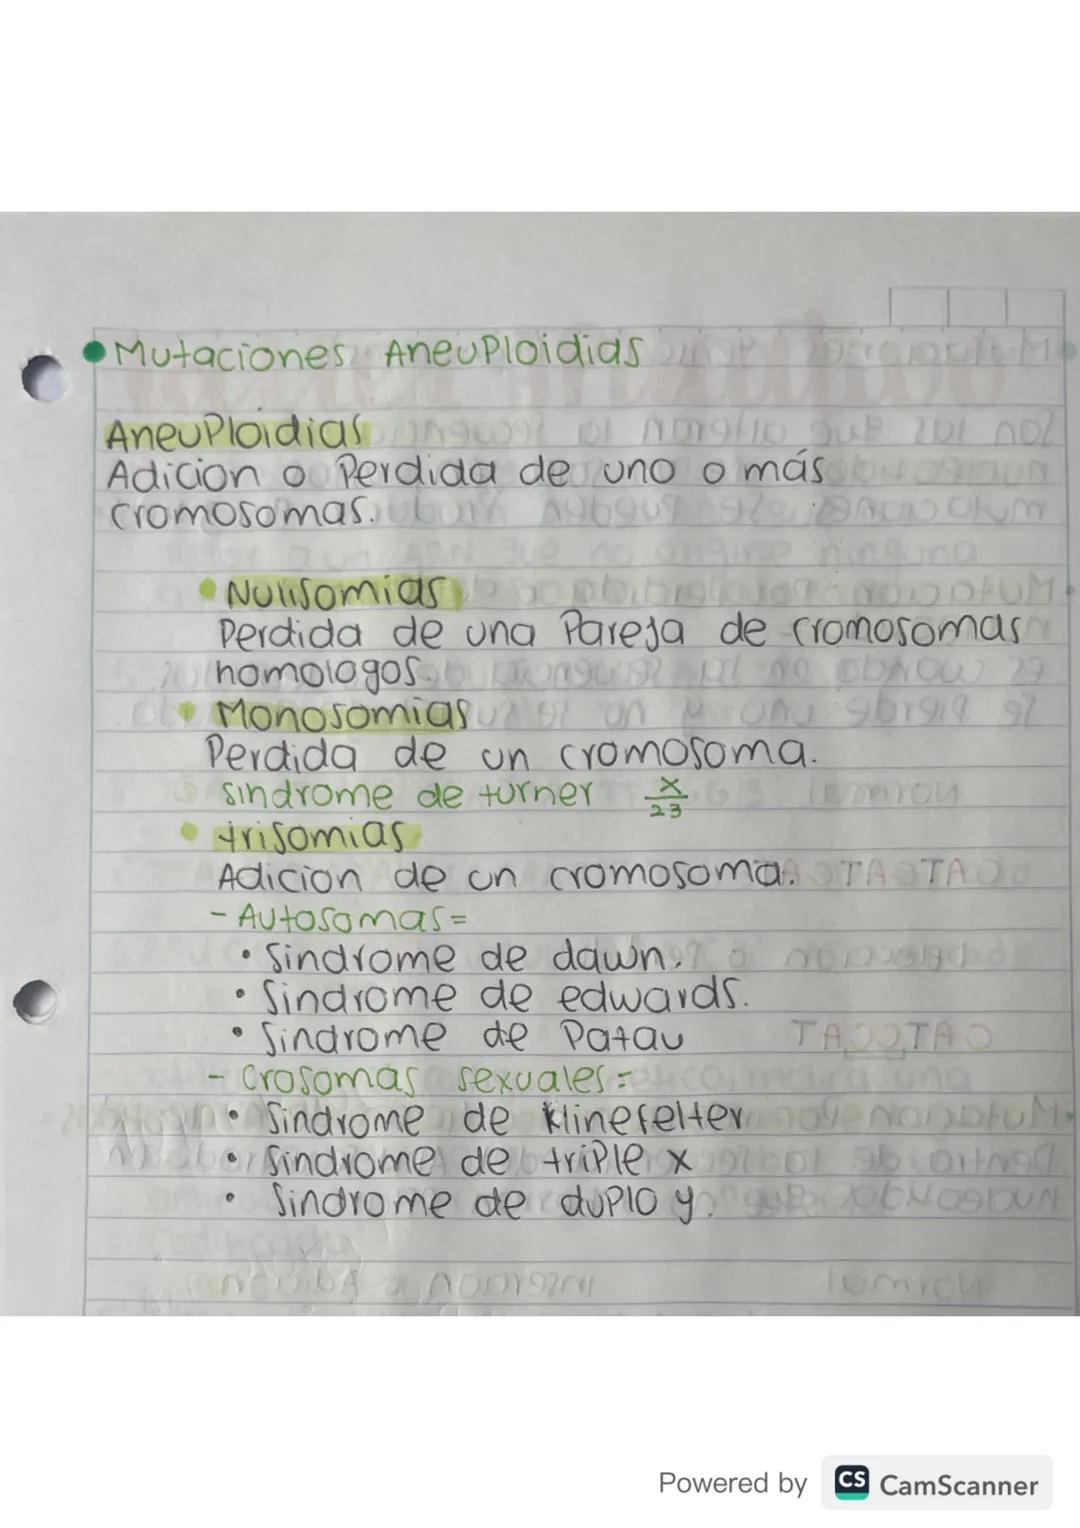 Mutaciones AneuPloidias
AneuPloidias
Adicion o Perdida de uno o más
cromosomas.
Nulisomias
Perdida de una Pareja de cromosomas
homologos.
Monosomias
Perdida de un cromosoma.
sindrome de turner X/23
trisomias
Adicion de un cromosoma.
- Autosomas=
• Sindrome de dawn.
• Sindrome de edwards.
• Sindrome de Patau
- Crosomas sexuales=
• Sindrome de klinefelter
• Sindrome de triple x
• Sindrome de duplo y.
Powered by CS CamScanner